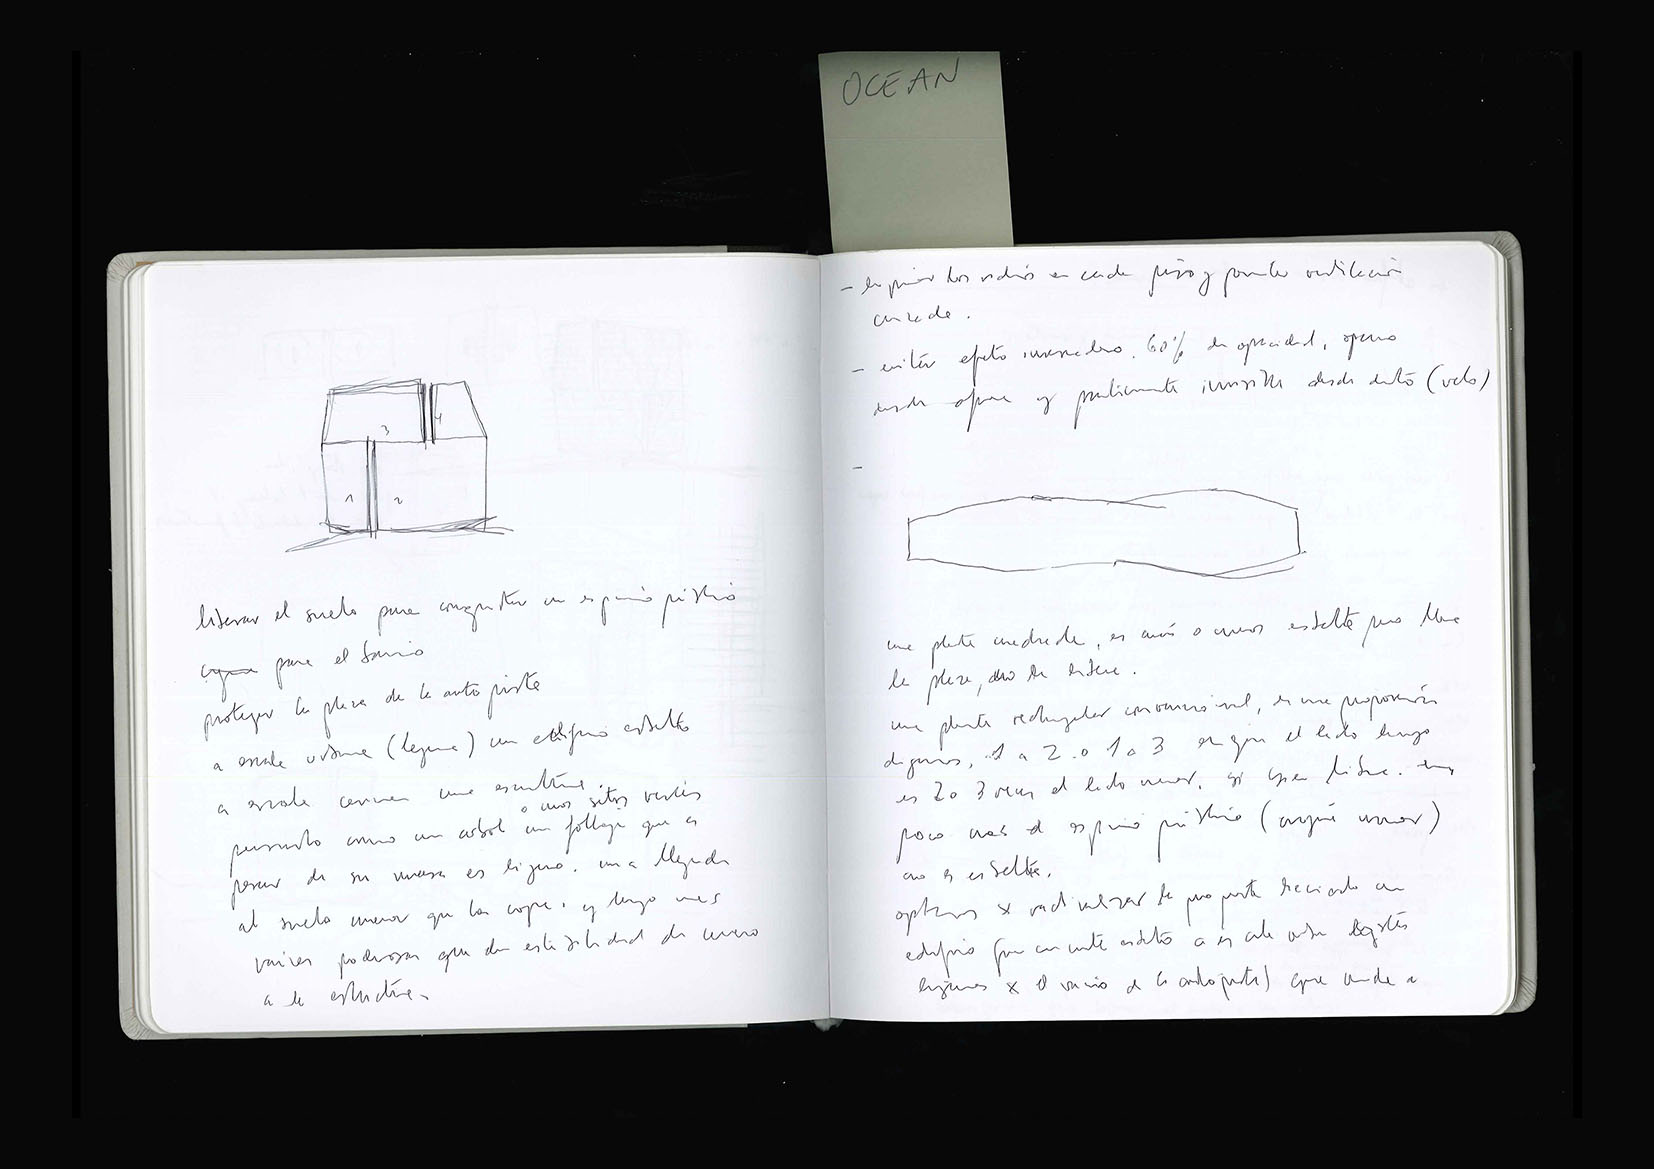 OCEAN
3 4
1 2
liberar el suelo para conquistar un espacio público
para el barrio
proteger la plaza de la autopista
a escala urbana (lejana) un edificio esbelto
a escala cercana una escultura.
o unos sitos
pensarlo como un arbol un follaje que a
pesar de su masa es ligero. una llegada
al suelo menor que la copa. y luego unas
raices poderosas que dan estabilidad de nuevo
a la estructura.
- limpiar los vidrios en cada piso y permitir ventilación
cruzada.
- evitar efecto invernadero. 60% de opacidad, opaco
desde afuera y practicamente invisible desde dentro (velo)
-
una planta cuadrada, es más o menos esbelta pero llena
la plaza, no la libera.
una planta rectangular convencional, es una proporción
digamos, 1 a 2 o 1 a 3 en que el lado largo
es 2 o 3 veces el lado menor, si que libra un
poco mas el espacio público (aunque menor)
no es esbelta.
optamos x radicalizar la propuesta haciendo un
edificio esbelto a escala urbana
x el vacio de la autopista) que